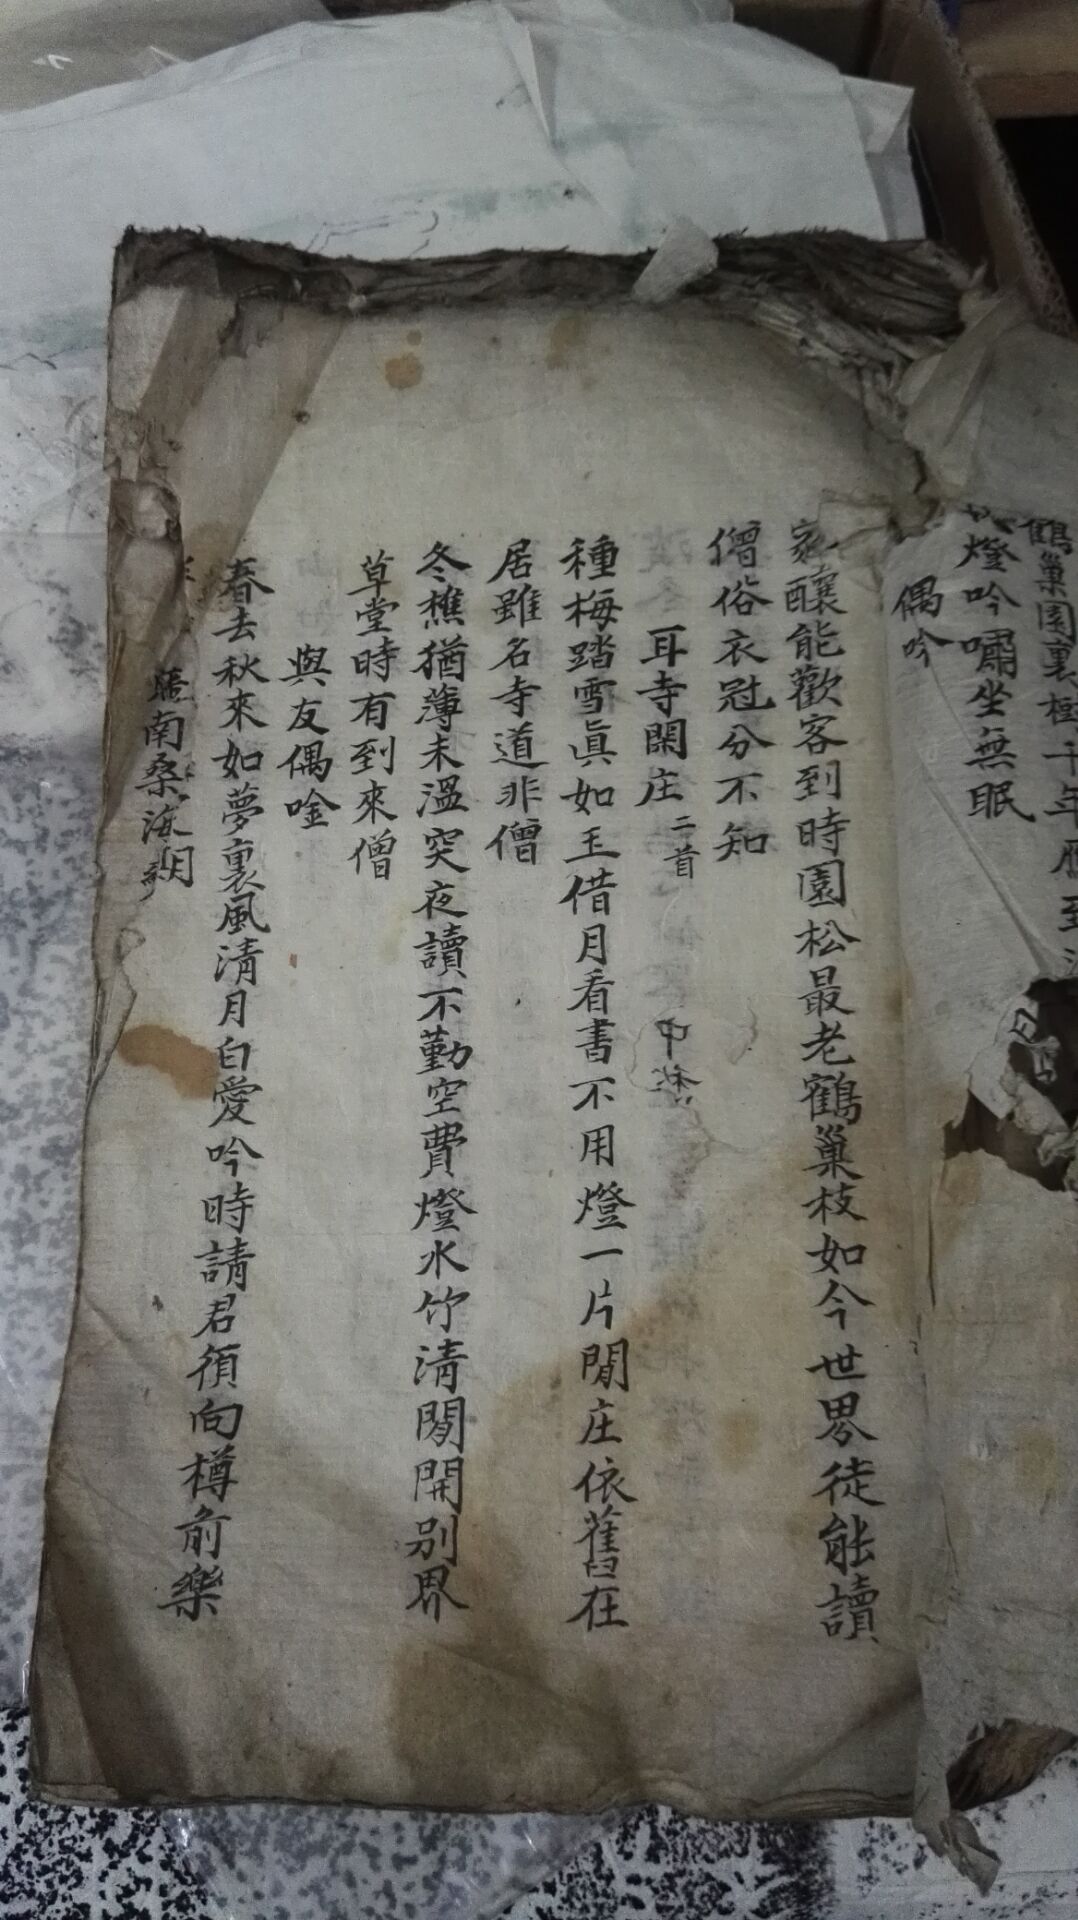 鶴巢園裏樹千年雁到
燈吟嘯坐無眠
偶吟
家釀能歡客到時園松最老鶴巢枝如今世界徒能讀
僧俗衣冠分不知
耳寺閑庄二首
種梅踏雪眞如玉借月看書不用燈一片閒庄依舊在
居雖名寺道非僧
冬樵猶薄未溫突夜讀不勤空費燈水竹清閒開別界
草堂時有到來僧
與友偶唫
春去秋來如夢裏風淸月白愛吟時請君須向樽前樂
南桑海